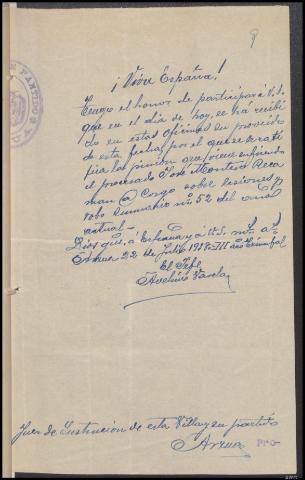 ¡Viva España!
Tengo el honor de participar a V.S.
que en el día de hoy, se ha recibi
do en estas oficinas su proveido
de esta fecha, por el que se rati
fica la prisión que viene sufriendo
el procesado José Montero Reca
man @ Corgo sobre lesiones y
robo sumario nº 52 del año
actual.-
Dios gue. a España y a V.S. ms. as.
Arzua 22 de Julio 1938-III año Triunfal
El Jefe,
Avelino Varela
Juez de Instrucción de esta Villa y su partido
Arzua PRO-